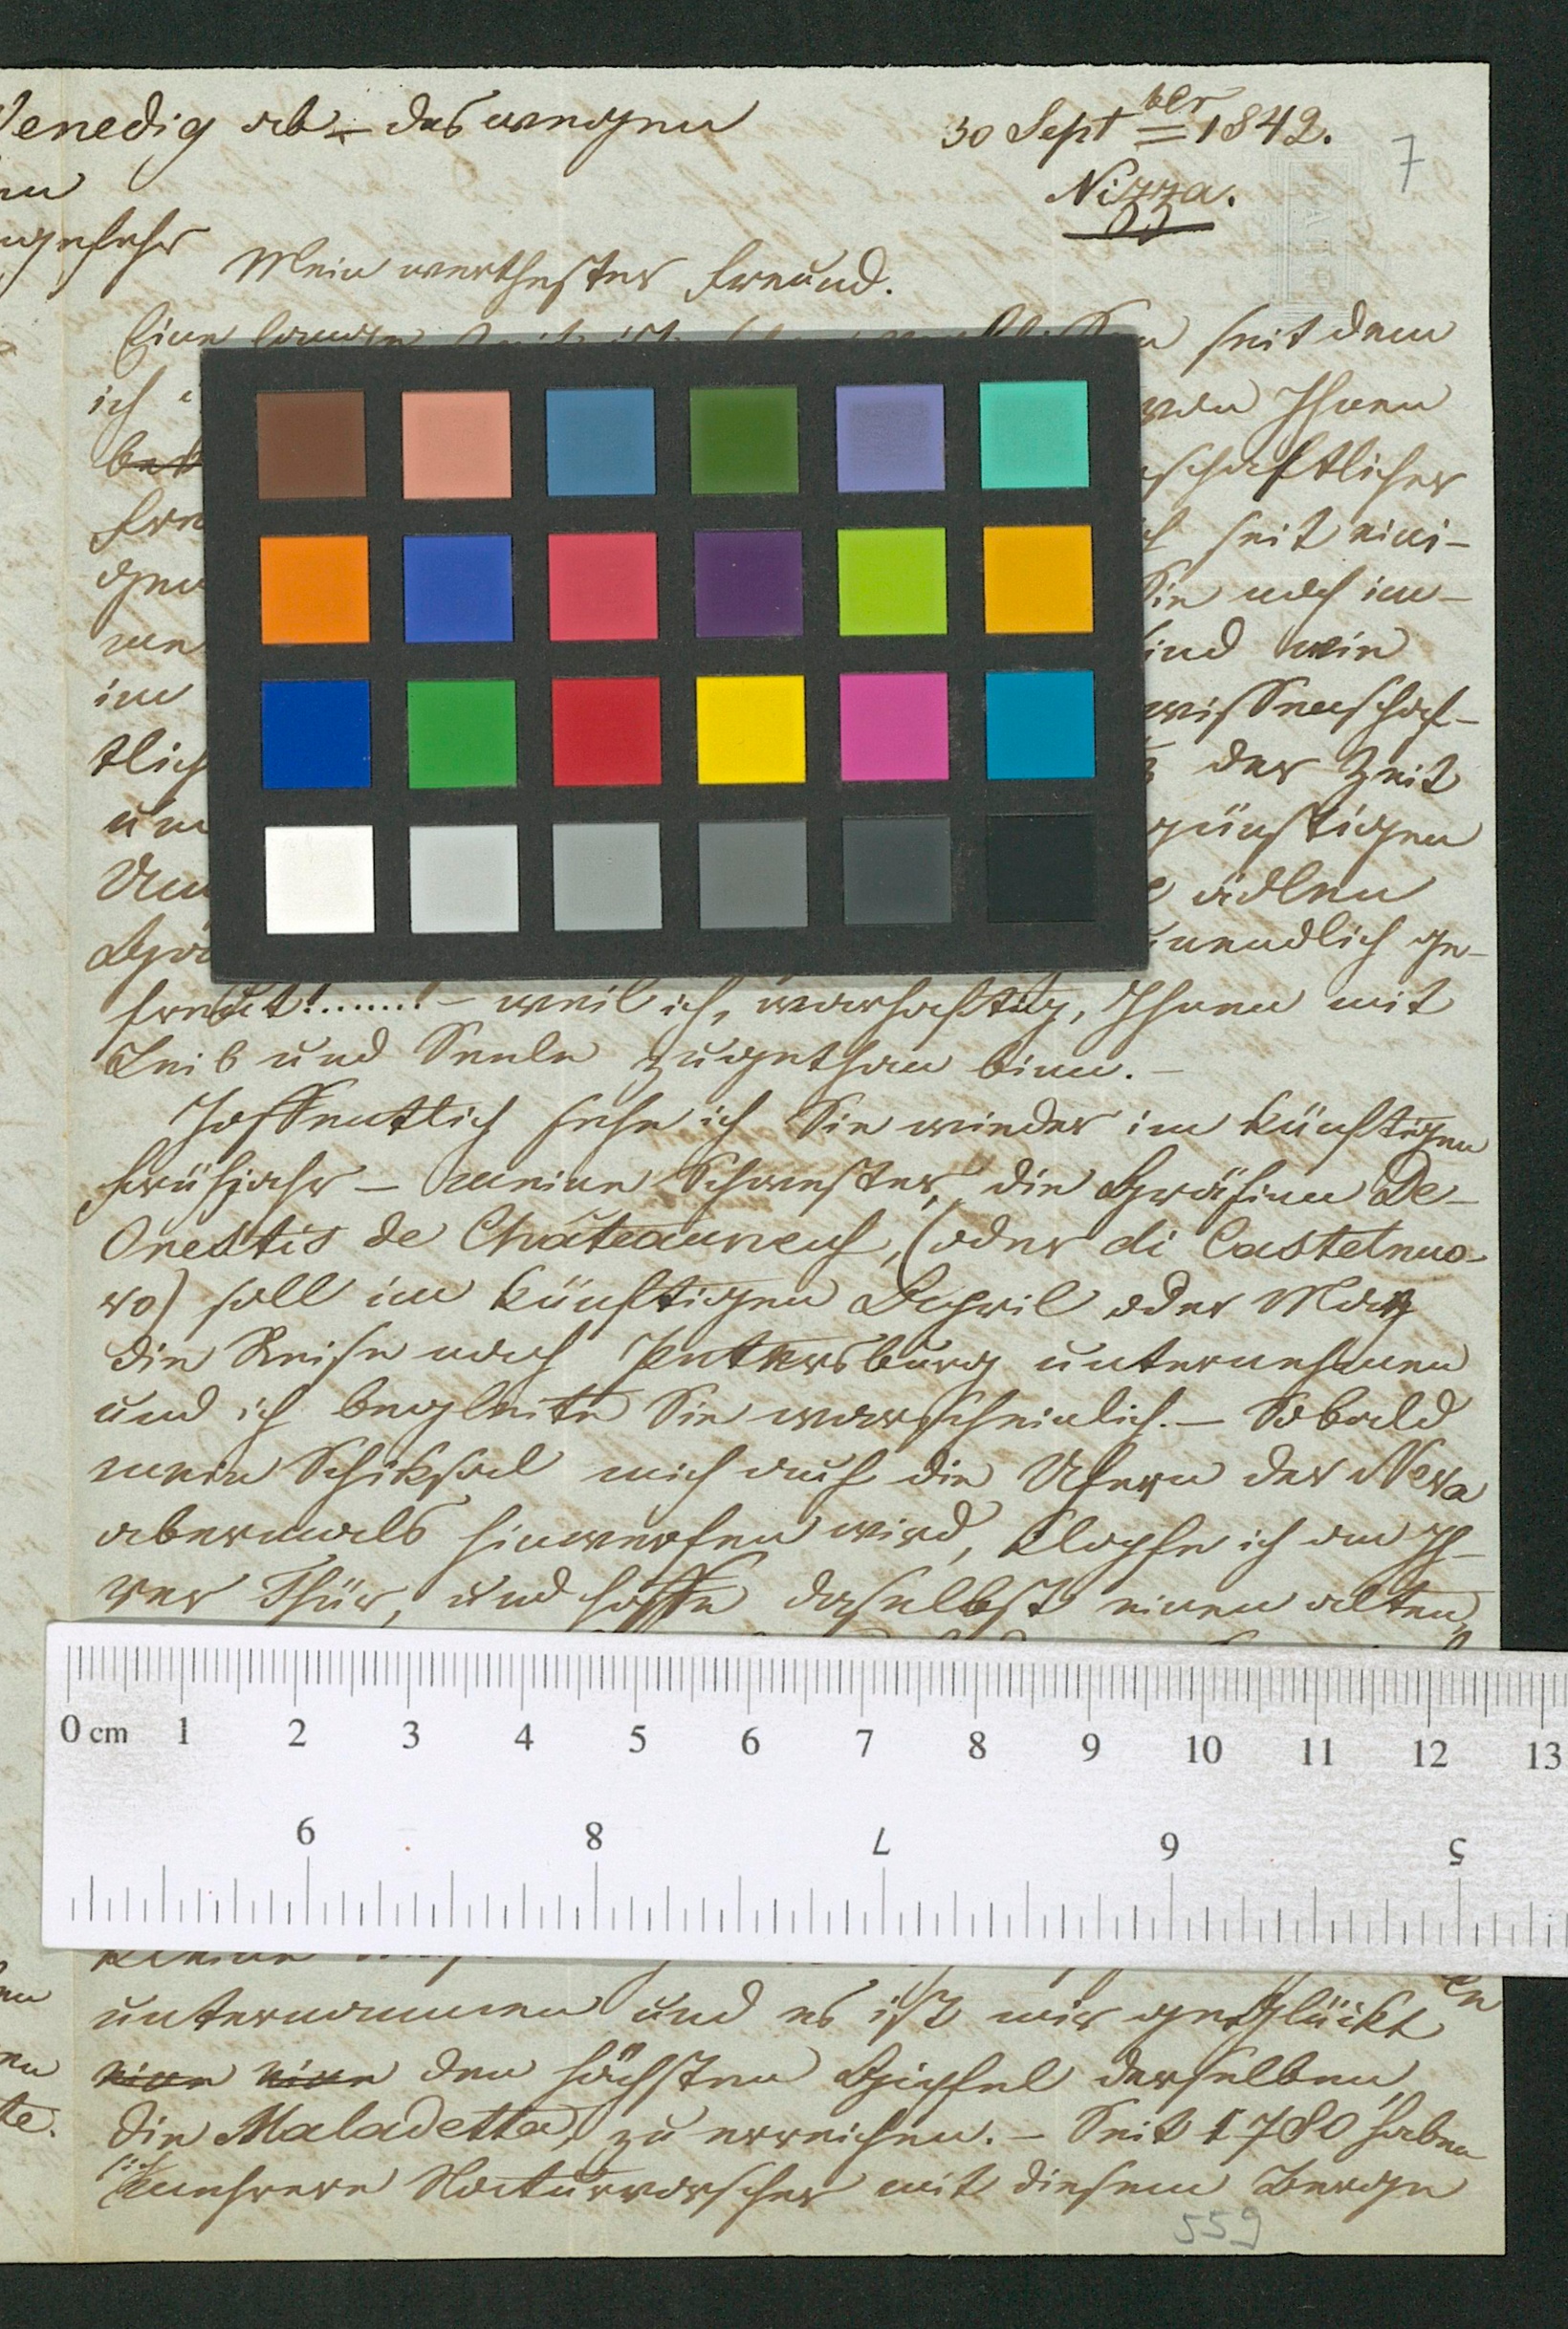 Venedig ab – deswegen
30 Sept ber 1842.
7
Nizza.
ungefehr
Mein werthester Freund.
Eine lange seit dem
ich von Ihnen
schaftlicher
seit eini-
gen Sie noch im-
me sind wie
im wissenschaf-
tlich der Zeit
um günstigen
edlen
unendlich ge-
freut!.......! – weil ich, warhaftig, Ihnen mit
Leib und Seele zugethan binn. –
Hoffentlich sehe ich Sie wieder im künftigen
Frühjahr – meine Schwester, die Gräfinn De-
Orestis de Châteauneuf, (oder di Castelnuo-
vo) soll im künftigen April oder May
die Reise nach Petersburg unternehmen
und ich begleite Sie warscheinlich. – Sobald
mein Schiksal mich auf die Ufern der Neva
abermals hinwerfen wird, klopfe ich an Ih-
rer Thür, und hoffe daselbst einen alten
0 cm 1 2 3 4 5 6 7 8 9 10 11 12 13
9 8 7 6 5
unternommen und es ist mir geglückt
eine eine den höchsten Gipfel derselben,
die Maladetta, zu erreichen. – Seit 1780 haben
sich mehrere Naturvorscher mit diesem Berge
559